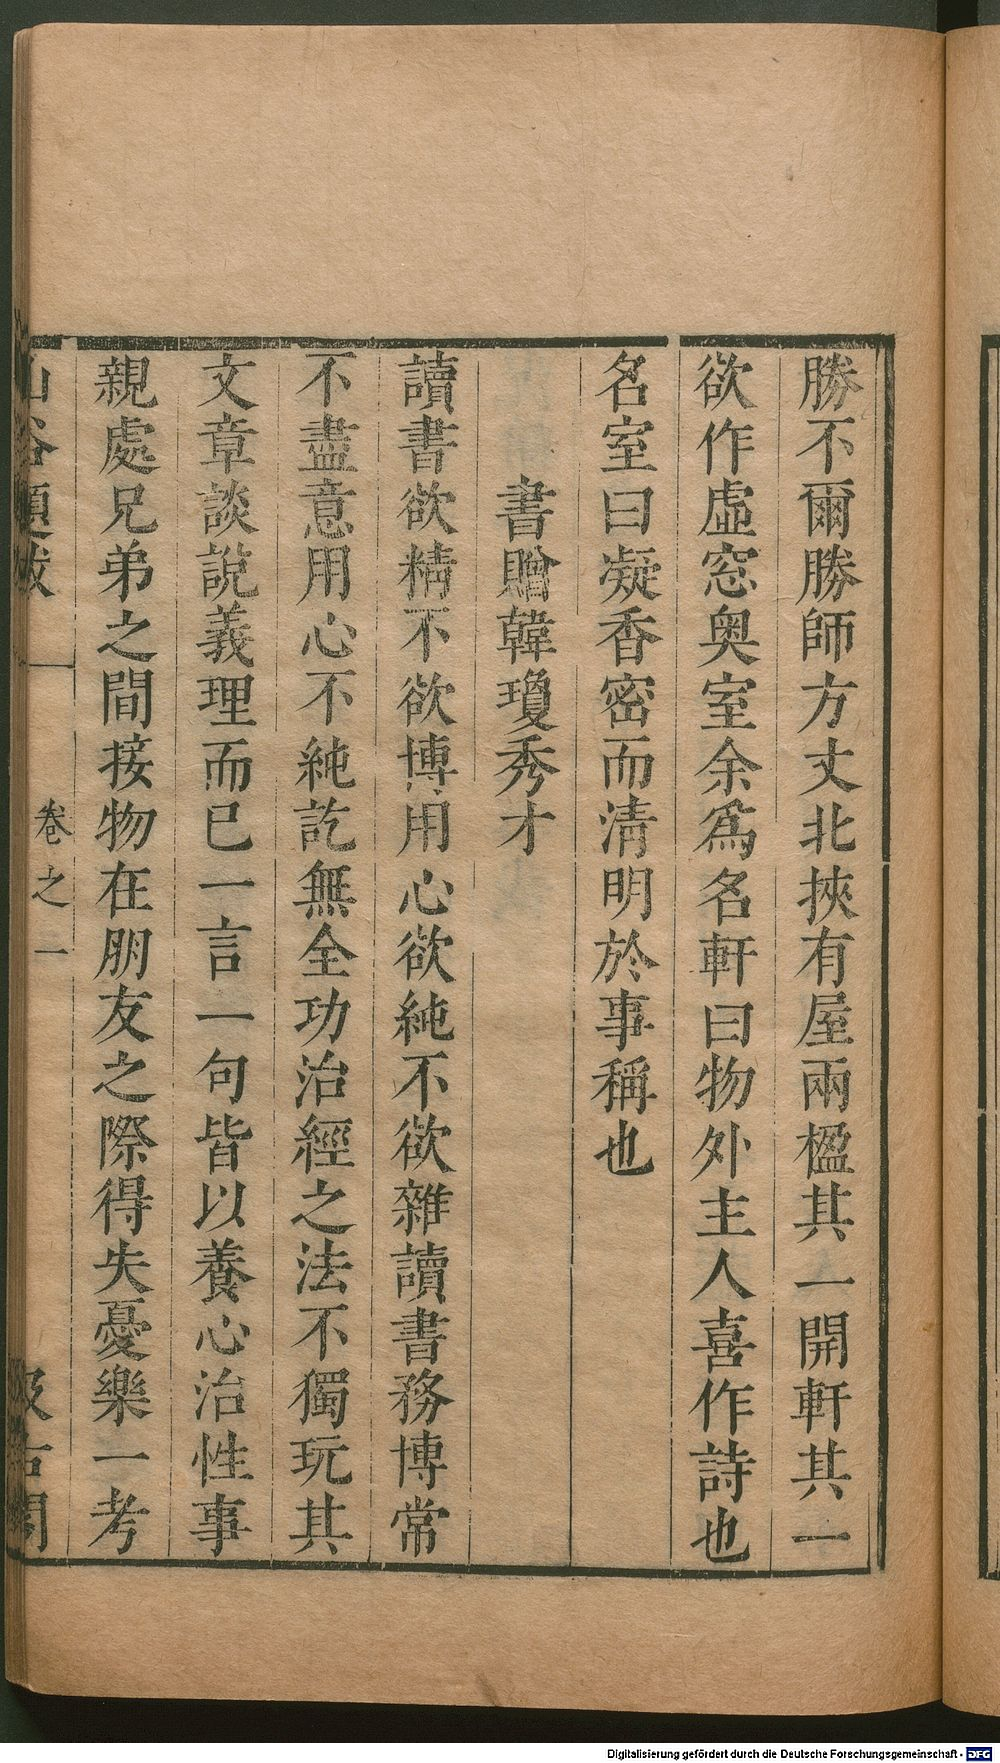 勝不爾勝師方丈北挾有屋兩楹其一開軒其一
欲作虛窓奥室余爲名軒曰物外主人喜作詩也
名室曰凝香密而清明於事稱也
書贈韓瓊秀才
讀書欲精不欲博用心欲純不欲雜讀書務博常
不盡意用心不純訖無全功治經之法不獨玩其
文章談說義理而已一言一句皆以養心治性事
親處兄弟之間接物在朋友之際得失憂樂一考
山谷題跋 卷之一 汲古閣
Digitalisierung gefördert durch die Deutsche Forschungsgemeinschaft - DFG